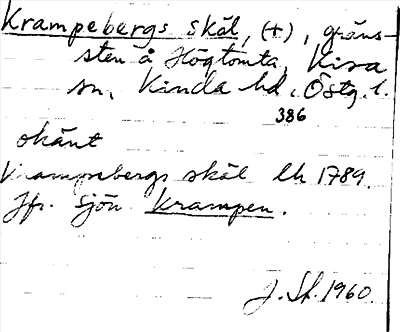 Krampebergs skäl, (+), gräns-
sten å Högtomta, Kisa
sn, Kinda hd, Östg. l.
386
okänt
Krampebergs skäl lh 1789.
Jfr. sjön Krampen.
J. Sh. 1960